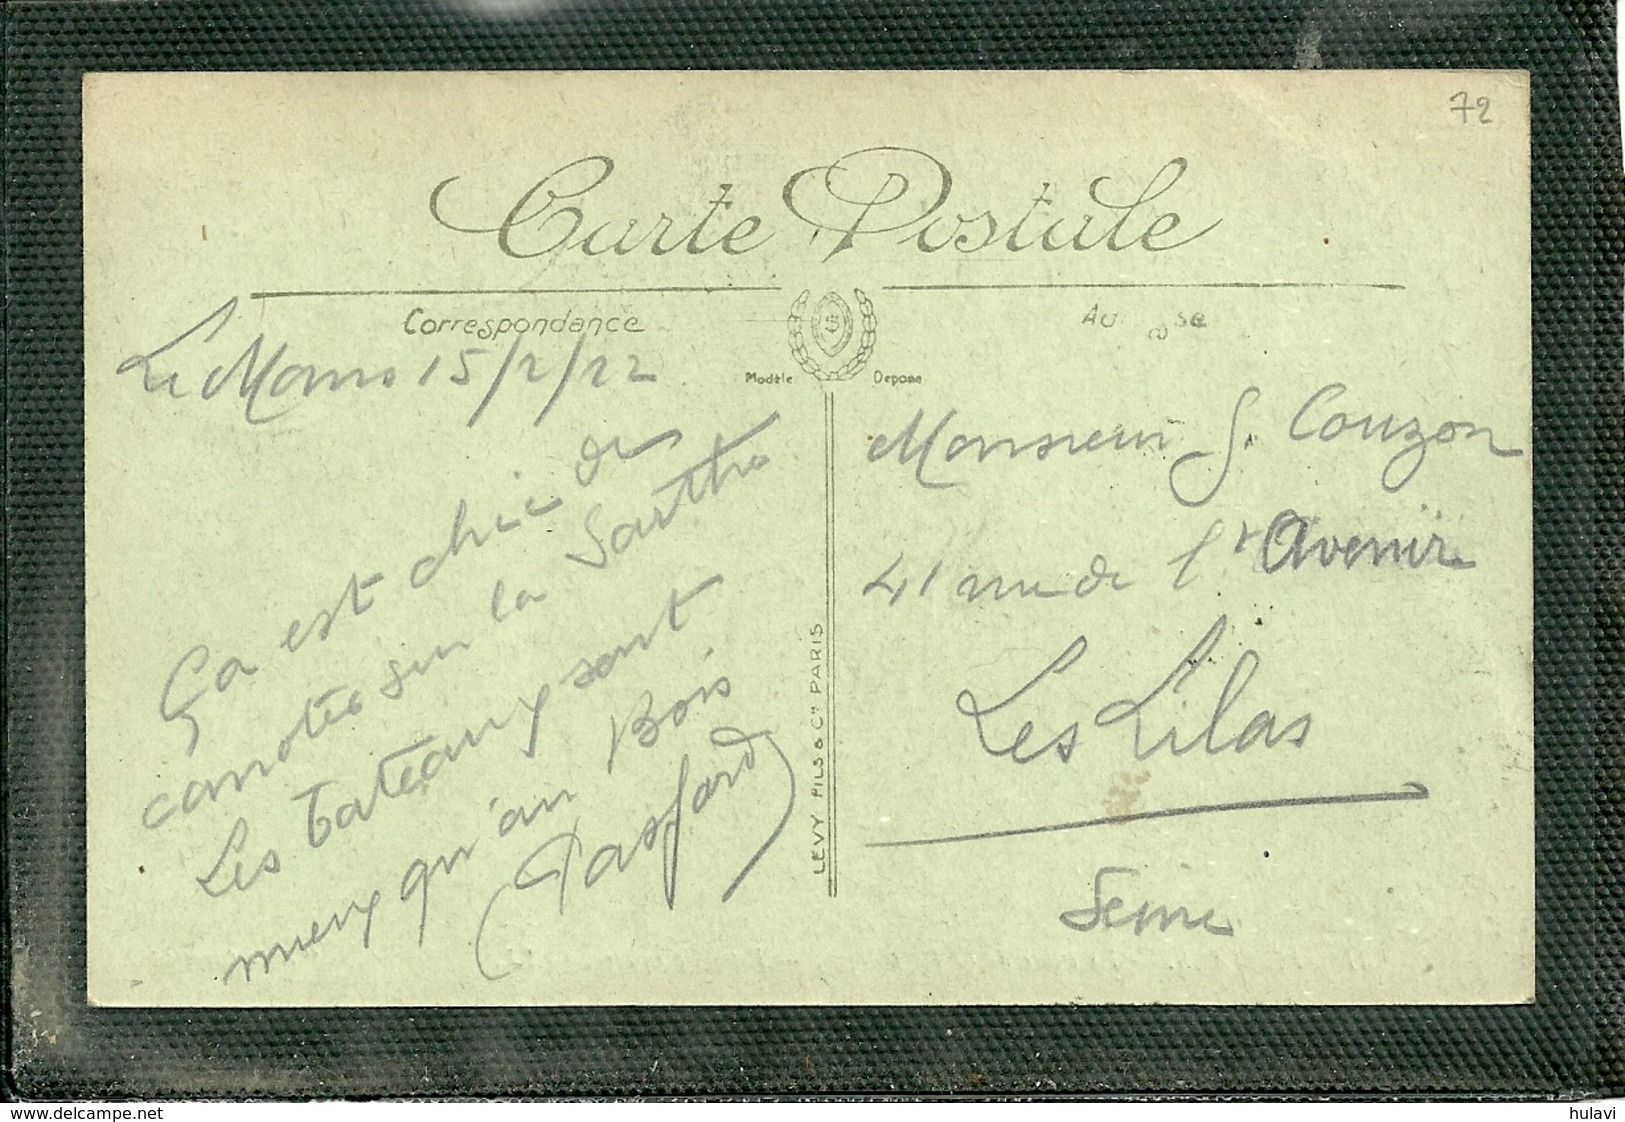 72
Carte Postale
Correspondance
Modèle
Déposé
Le Mans 15/2/22
Ça est chic de
canoter sur la Sarthe
Les bateaux sont
mieux qu'au Bois
LEVY FILS & Cie PARIS
Monsieur G. Couzon
41 rue de l'Avenir
Les Lilas
Seine
www.delcampe.net
hulavi